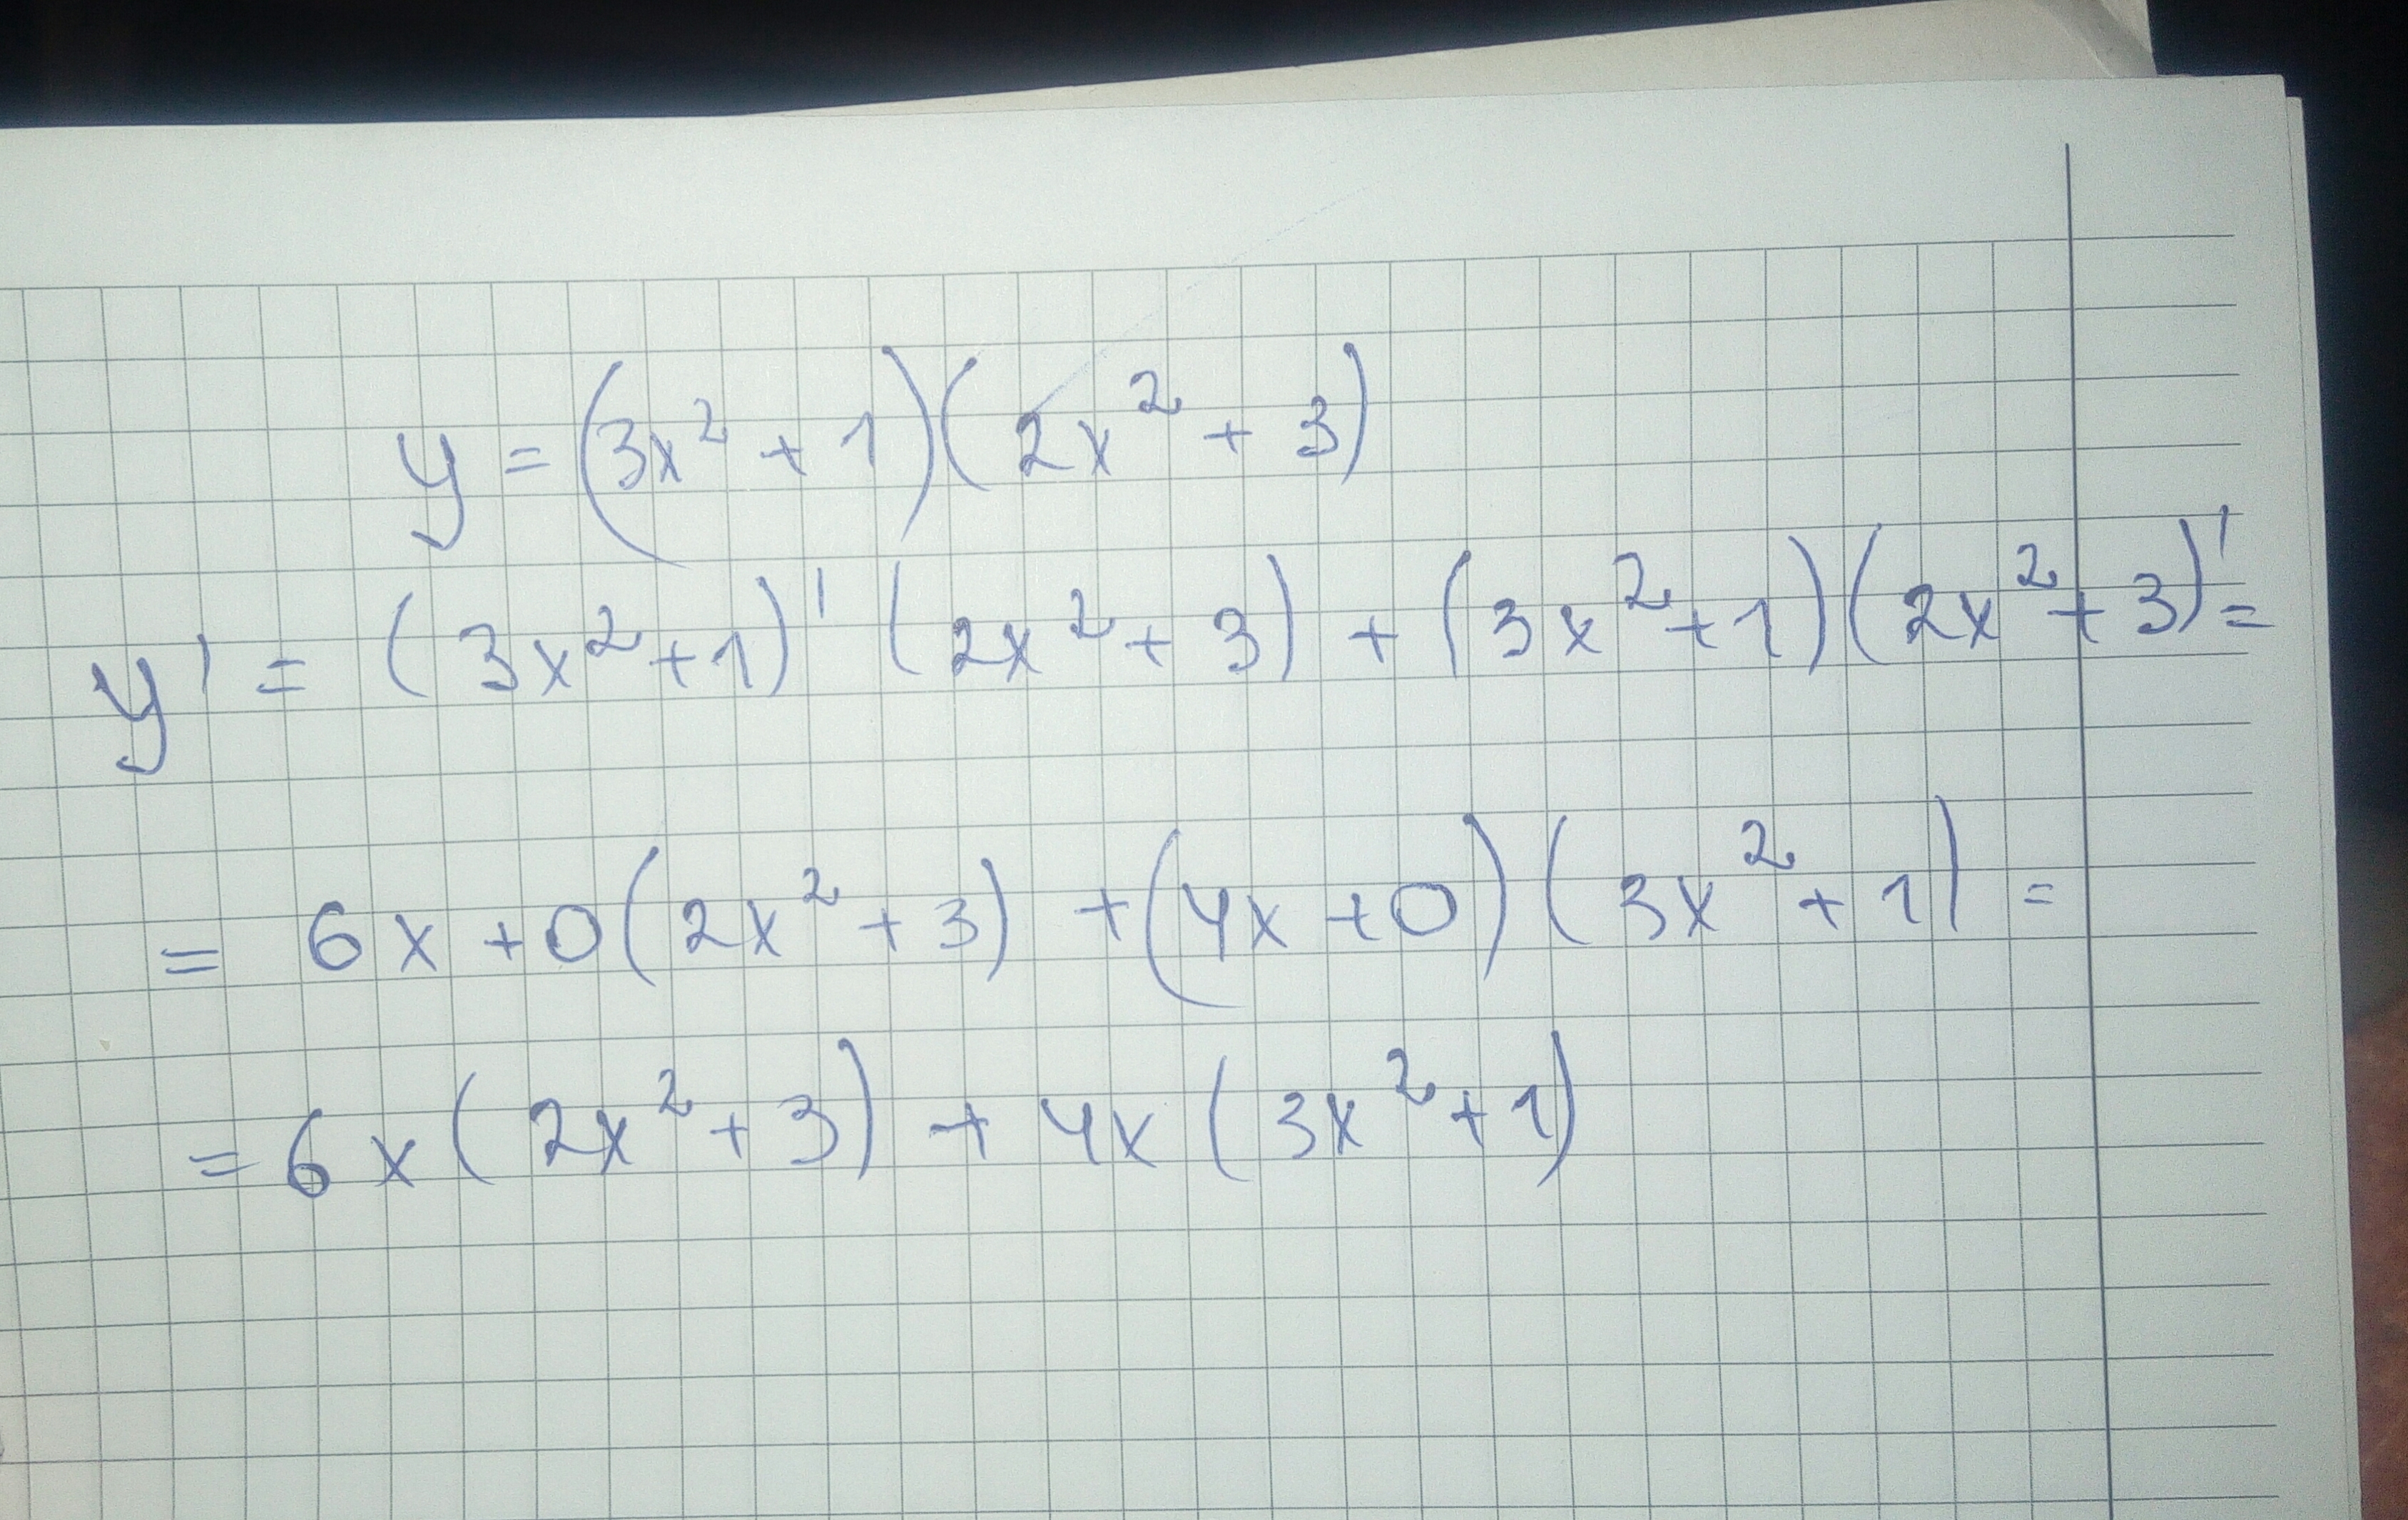 y = (3x² + 1)(2x² + 3)
y' = (3x² + 1)' (2x² + 3) + (3x² + 1)(2x² + 3)' =
= 6x + 0(2x² + 3) + (4x + 0)(3x² + 1) =
= 6x(2x² + 3) + 4x(3x² + 1)